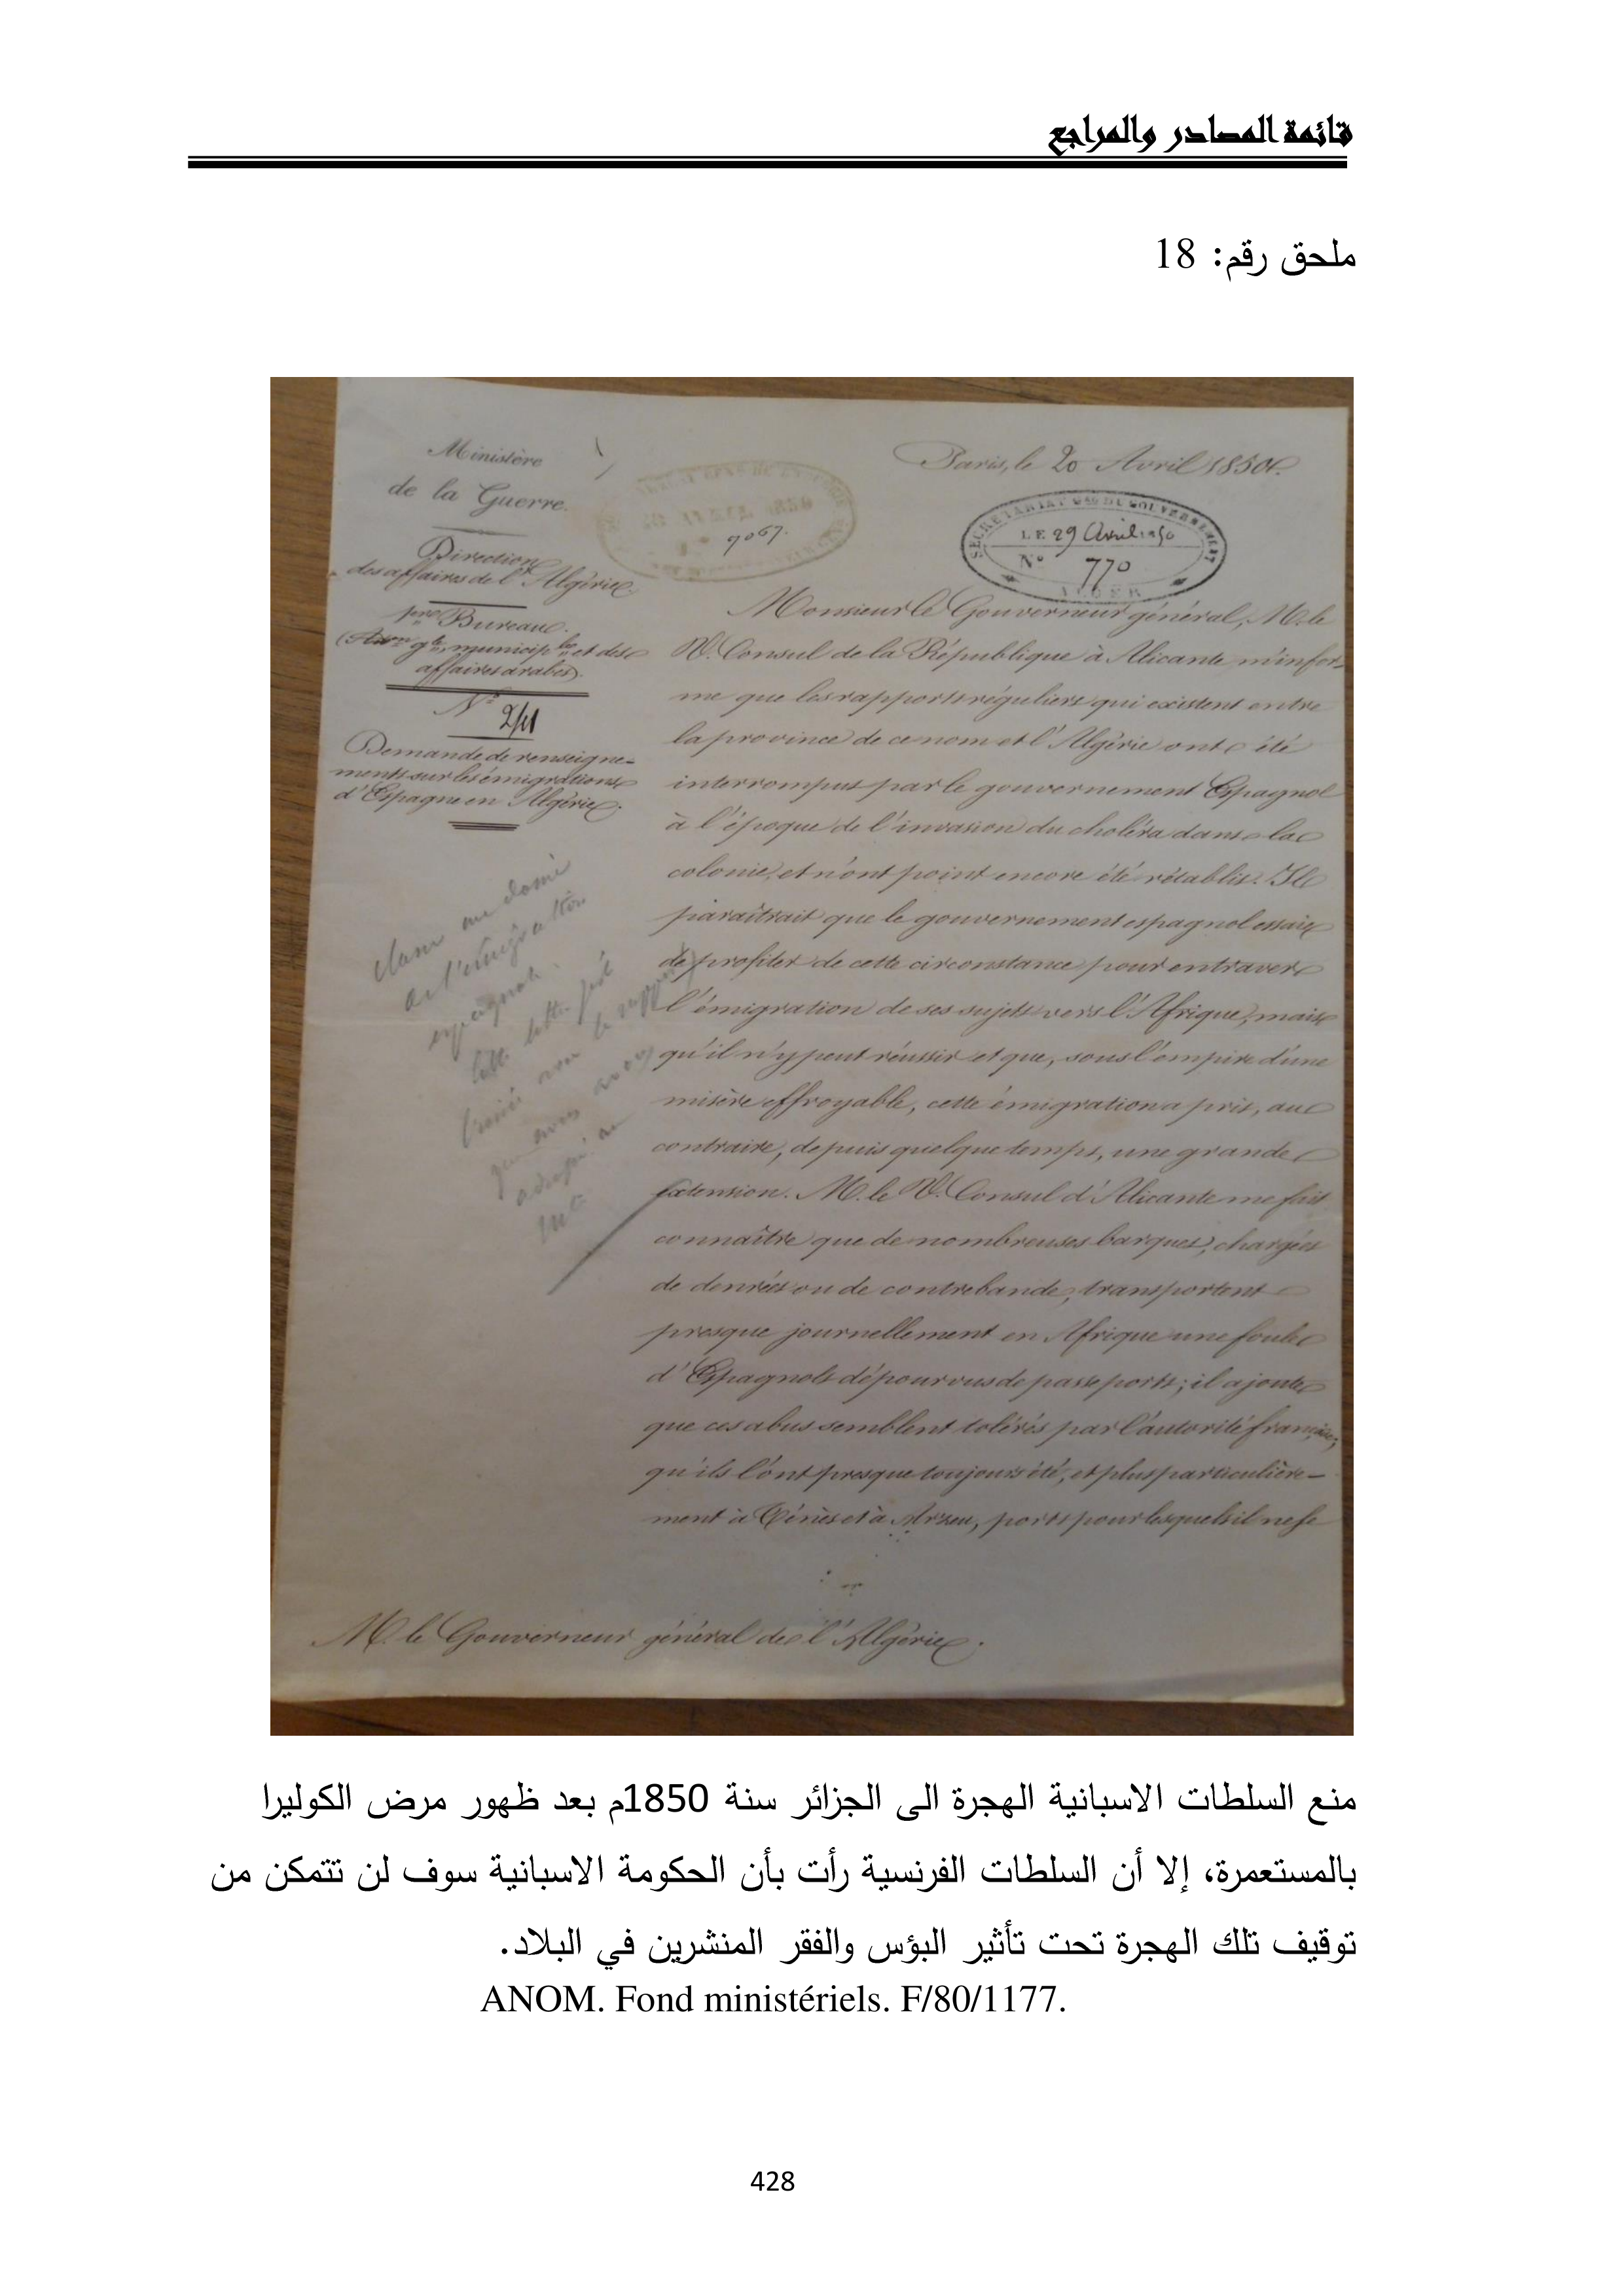 قائمة المصادر والمراجع
ملحق رقم: 18
Ministère
de la Guerre.
Direction
des affaires de l'Algérie
1er Bureau.
gle, municiple et des
affaires arabes).
N°
241
Demande de renseigne-
ments sur les émigrations
d'Espagne en Algérie.
9067.
Paris, le 20 Avril 1850.
SECRETARIAT GAL DU GOUVERNEMENT
LE 29 Avril 1850
N° 770
ALGER
Monsieur le Gouverneur général, M. le
V. Consul de la République à Alicante m'infor-
me que les rapports réguliers qui existent entre
la province de ce nom et l'Algérie ont été
interrompus par le gouvernement Espagnol
à l'époque de l'invasion du choléra dans la
colonie, et n'ont point encore été rétablis. Il
paraîtrait que le gouvernement espagnol essaie
de profiter de cette circonstance pour entraver
l'émigration de ses sujets vers l'Afrique, mais
qu'il n'y peut réussir et que, sous l'empire d'une
misère effroyable, cette émigration a pris, au
contraire, depuis quelque temps, une grande
extension. M. le V. Consul d'Alicante me fait
connaître que de nombreuses barques, chargées
de denrées ou de contrebande, transportent
presque journellement en Afrique une foule
d'Espagnols dépourvus de passeports; il ajoute
que ces abus semblent tolérés par l'autorité française,
qu'ils l'ont presque toujours été, et plus particulière-
ment à Ténès et à Arzeu, ports pour lesquels il ne se
M. le Gouverneur général de l'Algérie.
منع السلطات الاسبانية الهجرة الى الجزائر سنة 1850م بعد ظهور مرض الكوليرا
بالمستعمرة، إلا أن السلطات الفرنسية رأت بأن الحكومة الاسبانية سوف لن تتمكن من
توقيف تلك الهجرة تحت تأثير البؤس والفقر المنشرين في البلاد.
ANOM. Fond ministériels. F/80/1177.
428